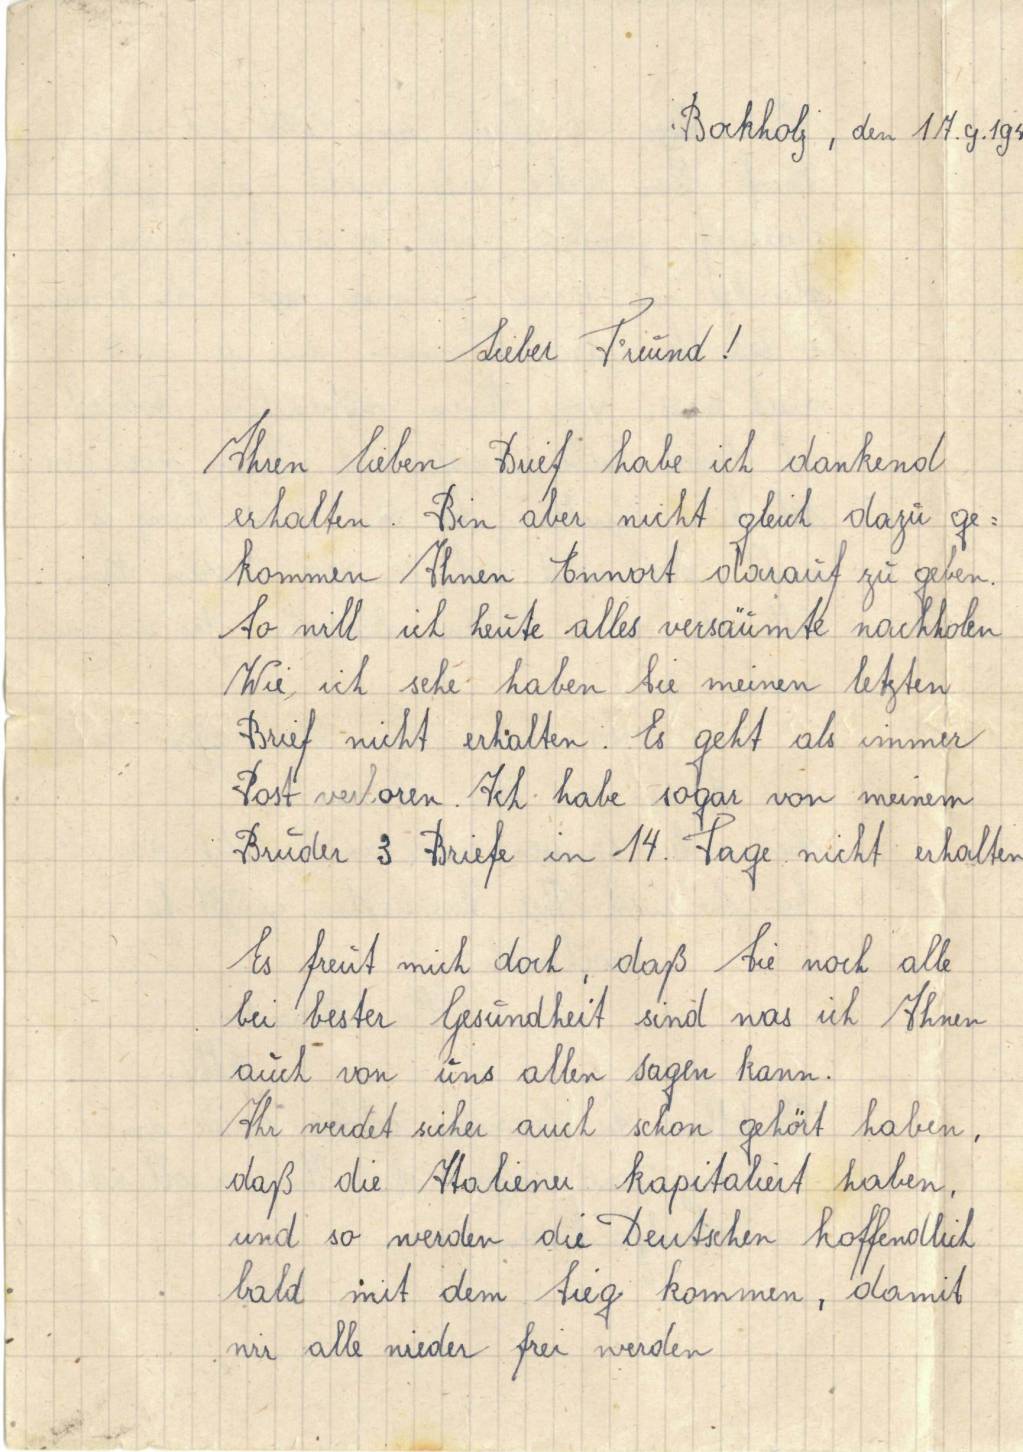 Bockholz, den 17.9.194
Lieber Freund!
Ihren lieben Brief habe ich dankend
erhalten. Bin aber nicht gleich dazu ge=
kommen Ihnen Ennvort darauf zu geben.
So will ich heute alles versäumte nachholen
Wie, ich sehe haben Sie meinen letzten
Brief nicht erhalten. Es geht als immer
Post verloren. Ich habe sogar von meinem
Bruder 3 Briefe in 14. Tage nicht erhalten
Es freut mich doch, daß Sie noch alle
bei bester Gesundheit sind was ich Ihnen
auch von uns allen sagen kann.
Ihr werdet sicher auch schon gehört haben,
daß die Italiener kapitaliert haben,
und so werden die Deutschen hoffendlich
bald mit dem Sieg kommen, damit
wir alle wieder frei werden